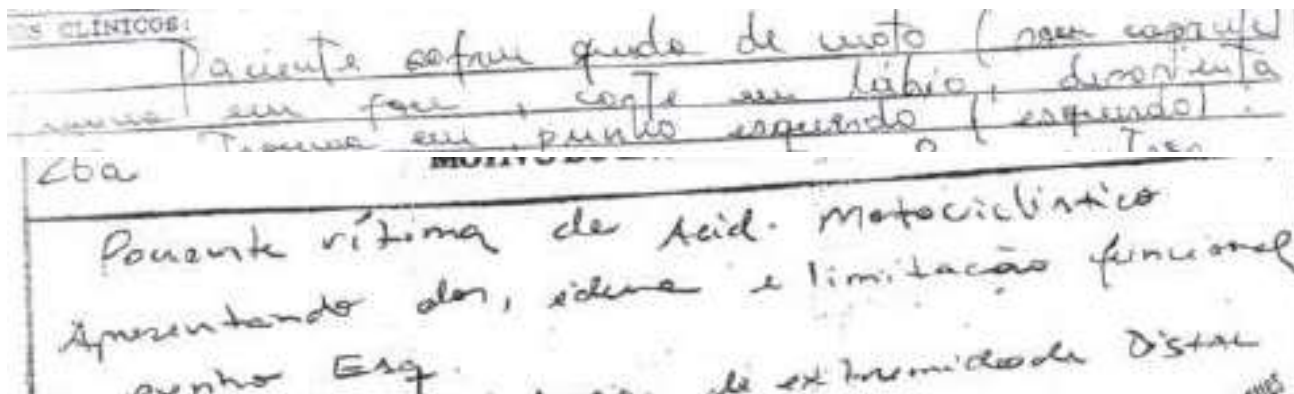 OS CLÍNICOS:
Paciente sofreu queda de moto (sem capacete)
trauma em face, corte em lábio, desorienta
Trauma em punho esquerdo (esquerdo).
26a
Paciente vítima de Acid. Motociclístico
Apresentando dor, edema e limitação funcional
punho Esq.
de extremidade Distal